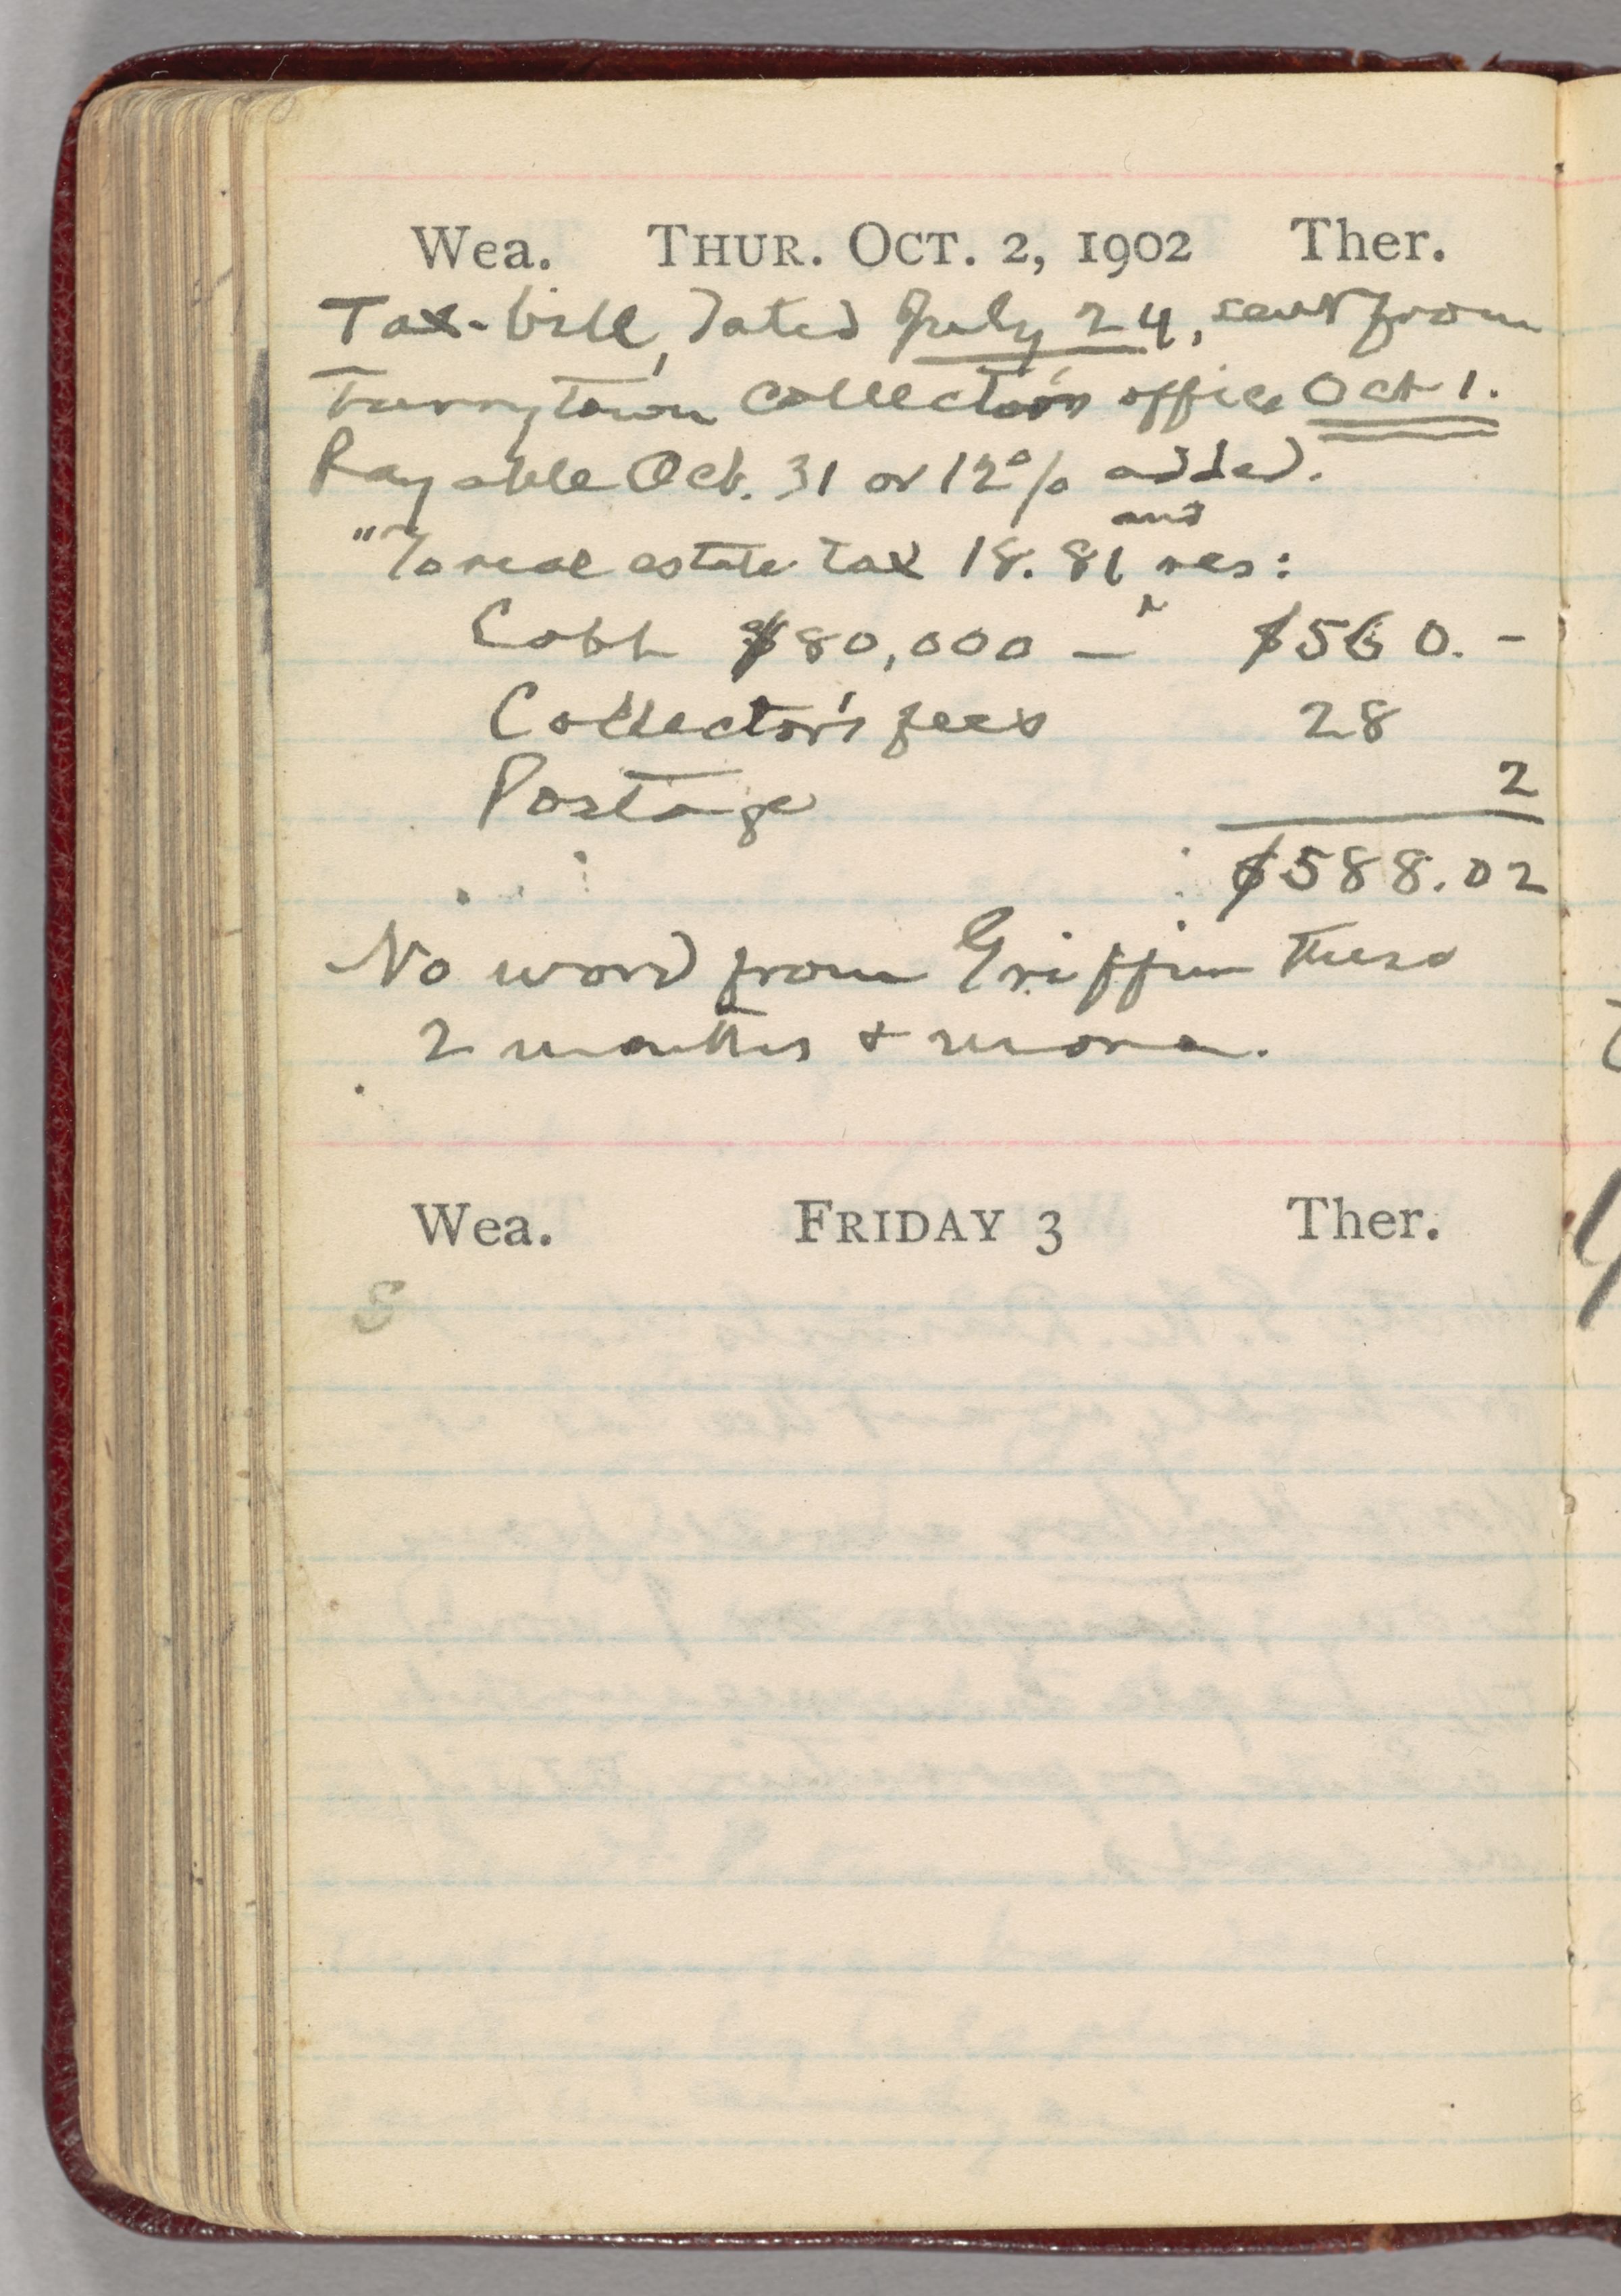 Wea. THUR. OCT. 2, 1902 Ther.
Tax-bill, dated July 24, sent from
Tarrytown Collector's office Oct 1.
Payable Oct. 31 or 12% added.
"To real estate tax 18.81 and res:
Cobb $80,000 — $560. -
Collector's fees 28
Postage 2
$588.02
No word from Griffin these
2 months & more.
Wea. FRIDAY 3 Ther.
S